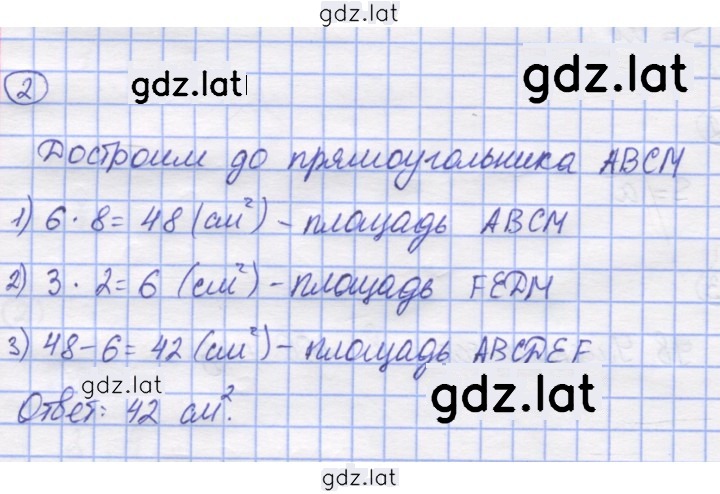 gdz.lat
gdz.lat
2 gdz.lat
Достроим до прямоугольника АВСМ
1) 6 · 8 = 48 (см²) – площадь АВСМ
2) 3 · 2 = 6 (см²) – площадь FEDM
3) 48 – 6 = 42 (см²) – площадь ABCDEF
gdz.lat
gdz.lat
Ответ: 42 см².
gdz.lat